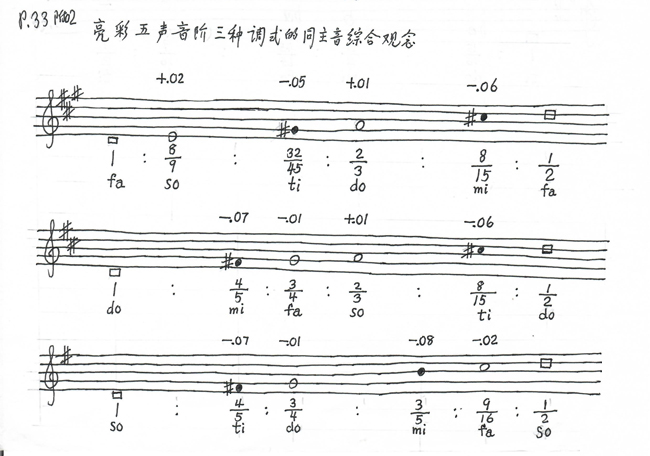 P.33 P002 亮彩五声音阶三种调式的同主音综合观念
+.02 -.05 +.01 -.06
1 : 8/9 : 32/45 : 2/3 : 8/15 : 1/2
fa so ti do mi fa
-.07 -.01 +.01 -.06
1 : 4/5 : 3/4 : 2/3 : 8/15 : 1/2
do mi fa so ti do
-.07 -.01 -.08 -.02
1 : 4/5 : 3/4 : 3/5 : 9/16 : 1/2
so ti do mi fa so